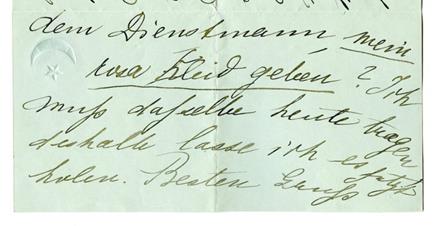 dem Dienstmann, mein
rosa Kleid geben? Ich
muß dasselbe heute tragen
deshalb lasse ich es
holen. Besten Gruß